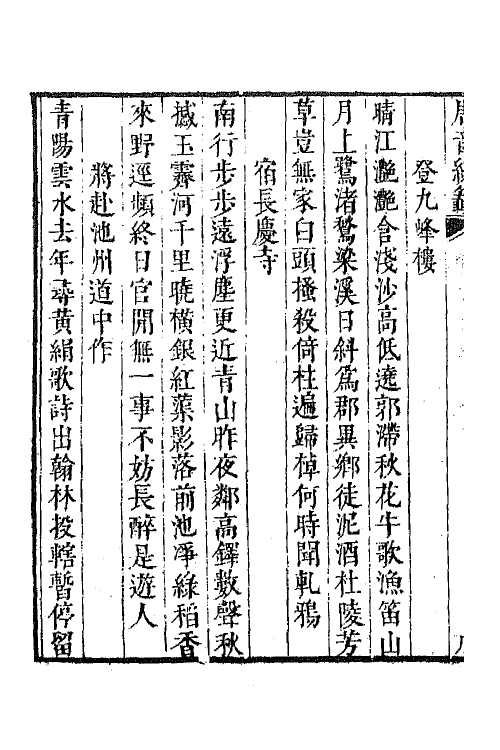 登九峰樓
晴江灩灩含淺沙高低遶郭滯秋花牛歌漁笛山
月上鷺渚鶖梁溪日斜爲郡異鄉徒泥酒杜陵芳
草豈無家白頭搔殺倚柱遍歸棹何時聞軋鴉
宿長慶寺
南行步步遠浮塵更近青山昨夜鄰高鐸數聲秋
撼玉霽河千里曉橫銀紅蕖影落前池凈綠稻香
來野逕頻終日官閒無一事不妨長醉是遊人
將赴池州道中作
青陽雲水去年尋黃絹歌詩出翰林投轄暫停留